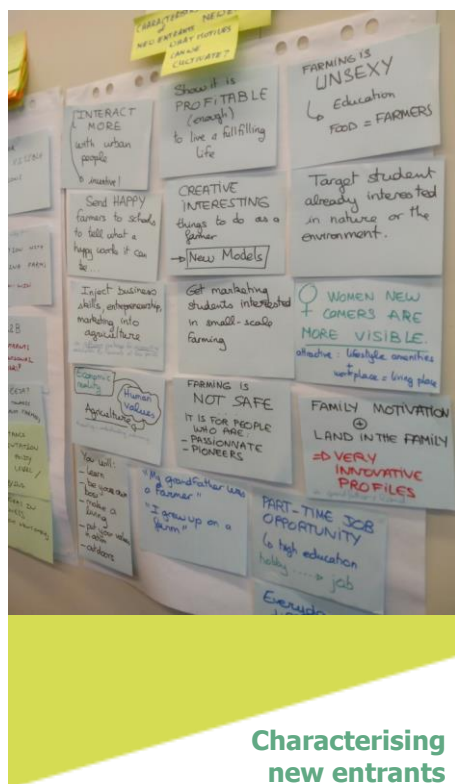 CHARACTERIS
NEW ENTRANTS
WHAT MOTIVES
CAN WE
CULTIVATE?
INTERACT
MORE
with urban
people
Show it is
PROFITABLE
(enough)
to live a fullfilling
life
FARMING IS
UNSEXY
Education
FOOD = FARMERS
Send HAPPY
farmers to schools
to tell what a
happy work it can
be...
CREATIVE
INTERESTING
things to do as a
farmer
New Models
Target student
already interested
in nature or the
environment.
Inject business
skills, entrepreneurship,
marketing into
agriculture
Get marketing
students interested
in small-scale
farming
♀ WOMEN NEW
COMERS ARE
MORE VISIBLE.
attractive: lifestyle amenities
workplace = living place
Economic
reality
Human
Values
Agriculture
FARMING IS
NOT SAFE
IT IS FOR PEOPLE
WHO ARE:
- PASSIONNATE
- PIONEERS
FAMILY MOTIVATION
+
LAND IN THE FAMILY
⇒ VERY
INNOVATIVE
PROFILES
You will:
- learn
- be your own
boss
- make a
living
- put your values
- outdoors
"My grandfather was
a farmer"
"I grew up on a
farm"
PART-TIME JOB
OPPORTUNITY
high education
hobby ....> job
Everyday
Characterising
new entrants